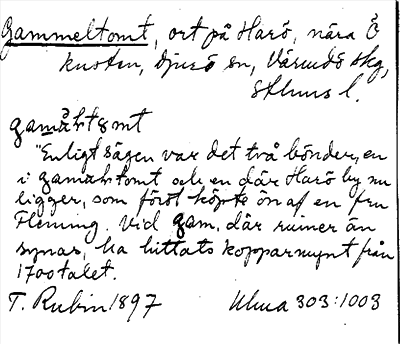 Gammeltomt, ort på Harö, nära Ö
kusten, Djurö sn, Värmdö skg,
Sthlms l.
gamåltomt
"Enligt sägen var det två bönder, en
i gamåltomt och en där Harö by nu
ligger, som först köpte ön af en fru
Fleming. Vid gam. där ruiner än
synas, ha hittats kopparmynt från
1700talet.
T. Rubin 1897 Uhua 303:1003